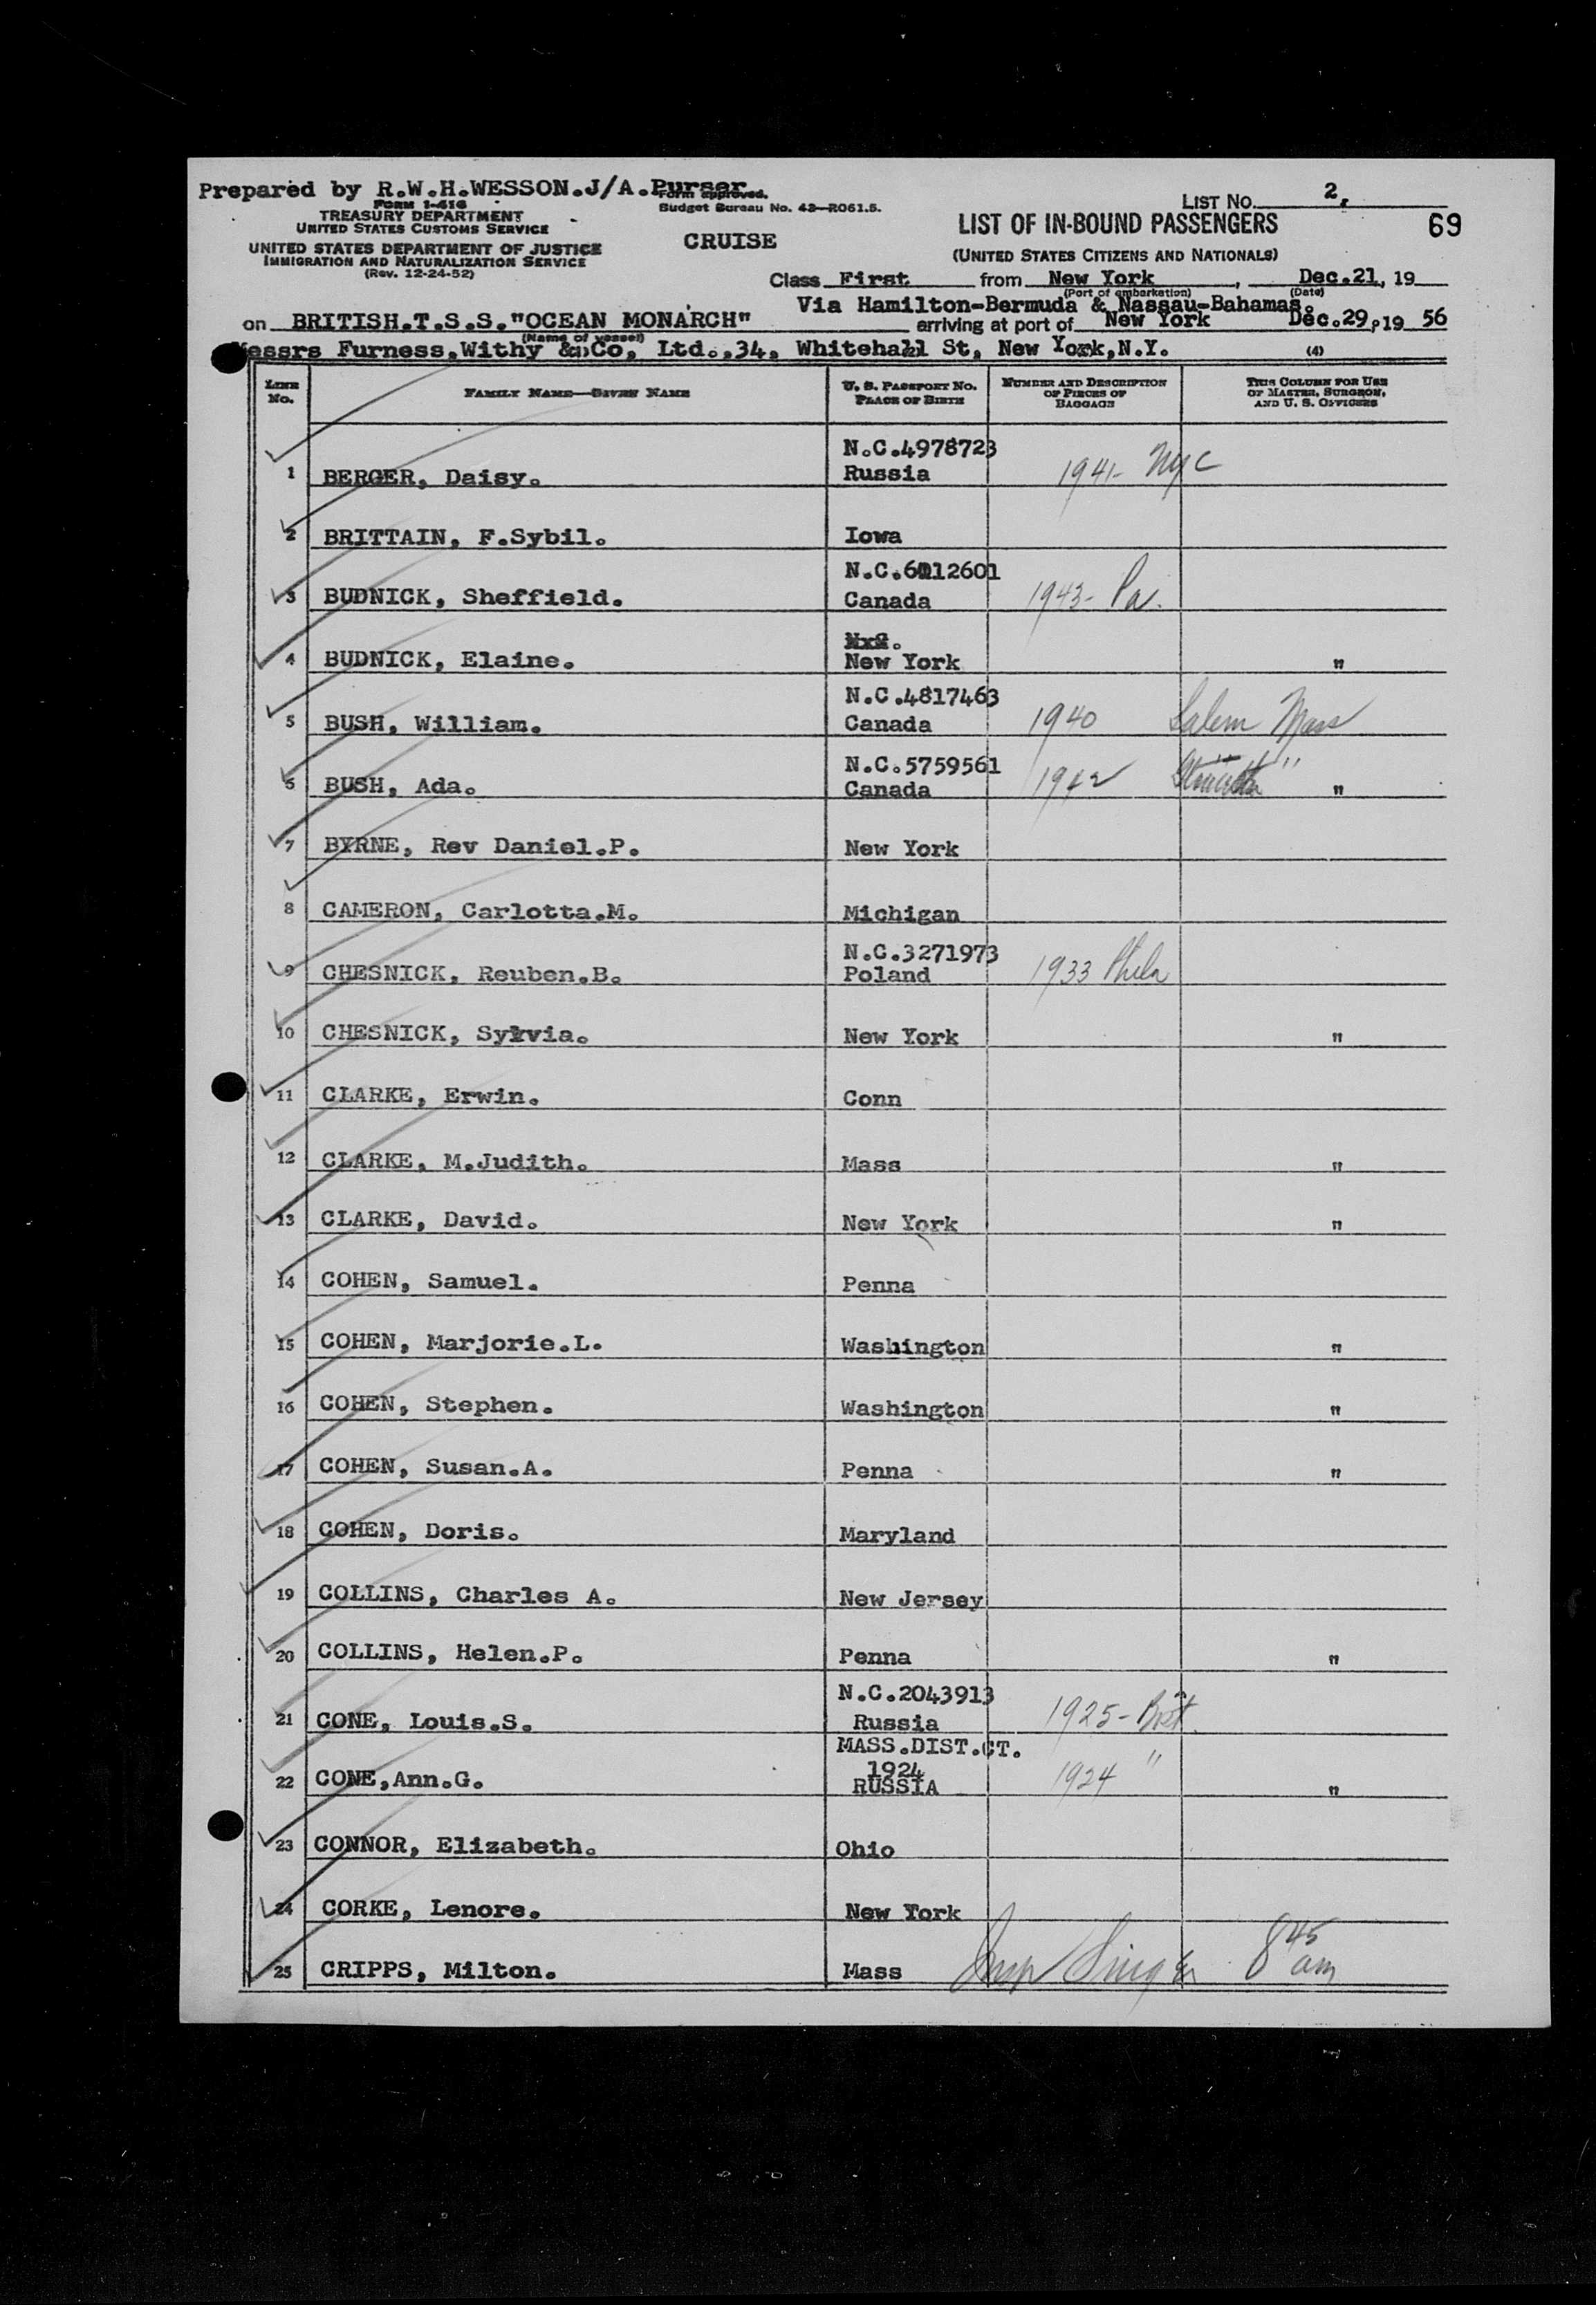 Prepared by R.W.H.WESSON.J/A.Purser
Form approved.
Budget Bureau No. 43-R061.5.
FORM I-416
TREASURY DEPARTMENT
UNITED STATES CUSTOMS SERVICE
UNITED STATES DEPARTMENT OF JUSTICE
IMMIGRATION AND NATURALIZATION SERVICE
(Rev. 12-24-52)
CRUISE
LIST NO. 2.
LIST OF IN-BOUND PASSENGERS 69
(UNITED STATES CITIZENS AND NATIONALS)
Class First from New York, Dec.21, 19
(Port of embarkation) (Date)
Via Hamilton-Bermuda & Nassau-Bahamas.
on BRITISH.T.S.S."OCEAN MONARCH" arriving at port of New York Dec.29, 19 56
(Name of vessel)
Messrs Furness,Withy & Co, Ltd.,34, Whitehall St, New York,N.Y. (4)
LINE No. FAMILY NAME—GIVEN NAME U. S. PASSPORT NO. PLACE OF BIRTH NUMBER AND DESCRIPTION OF PIECES OF BAGGAGE THIS COLUMN FOR USE OF MASTER, SURGEON, AND U. S. OFFICERS
1 BERGER, Daisy. N.C.4978723 Russia 1941- NYC
2 BRITTAIN, F.Sybil. Iowa
3 BUDNICK, Sheffield. N.C.6012601 Canada 1943- Pa.
4 BUDNICK, Elaine. New York "
5 BUSH, William. N.C.4817463 Canada 1940 Salem Mass
6 BUSH, Ada. N.C.5759561 Canada 1942 " " "
7 BYRNE, Rev Daniel.P. New York
8 CAMERON, Carlotta.M. Michigan
9 CHESNICK, Reuben.B. N.C.3271973 Poland 1933 Phila
10 CHESNICK, Sylvia. New York "
11 CLARKE, Erwin. Conn
12 CLARKE, M.Judith. Mass "
13 CLARKE, David. New York "
14 COHEN, Samuel. Penna
15 COHEN, Marjorie.L. Washington "
16 COHEN, Stephen. Washington "
17 COHEN, Susan.A. Penna "
18 COHEN, Doris. Maryland
19 COLLINS, Charles A. New Jersey
20 COLLINS, Helen.P. Penna "
21 CONE, Louis.S. N.C.2043913 Russia 1925- Bost.
22 CONE,Ann.G. MASS.DIST.CT. 1924 RUSSIA 1924 " "
23 CONNOR, Elizabeth. Ohio
24 CORKE, Lenore. New York
25 CRIPPS, Milton. Mass Insp Singer 8 45 am